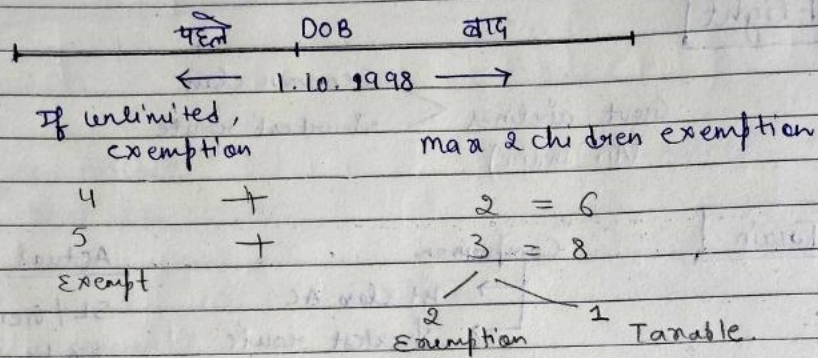 पहले DOB बाद
← 1.10.1998 →
If unlimited,
exemption max 2 children exemption
4 + 2 = 6
5 + 3 = 8
Exempt
2 1
Exemption Taxable.